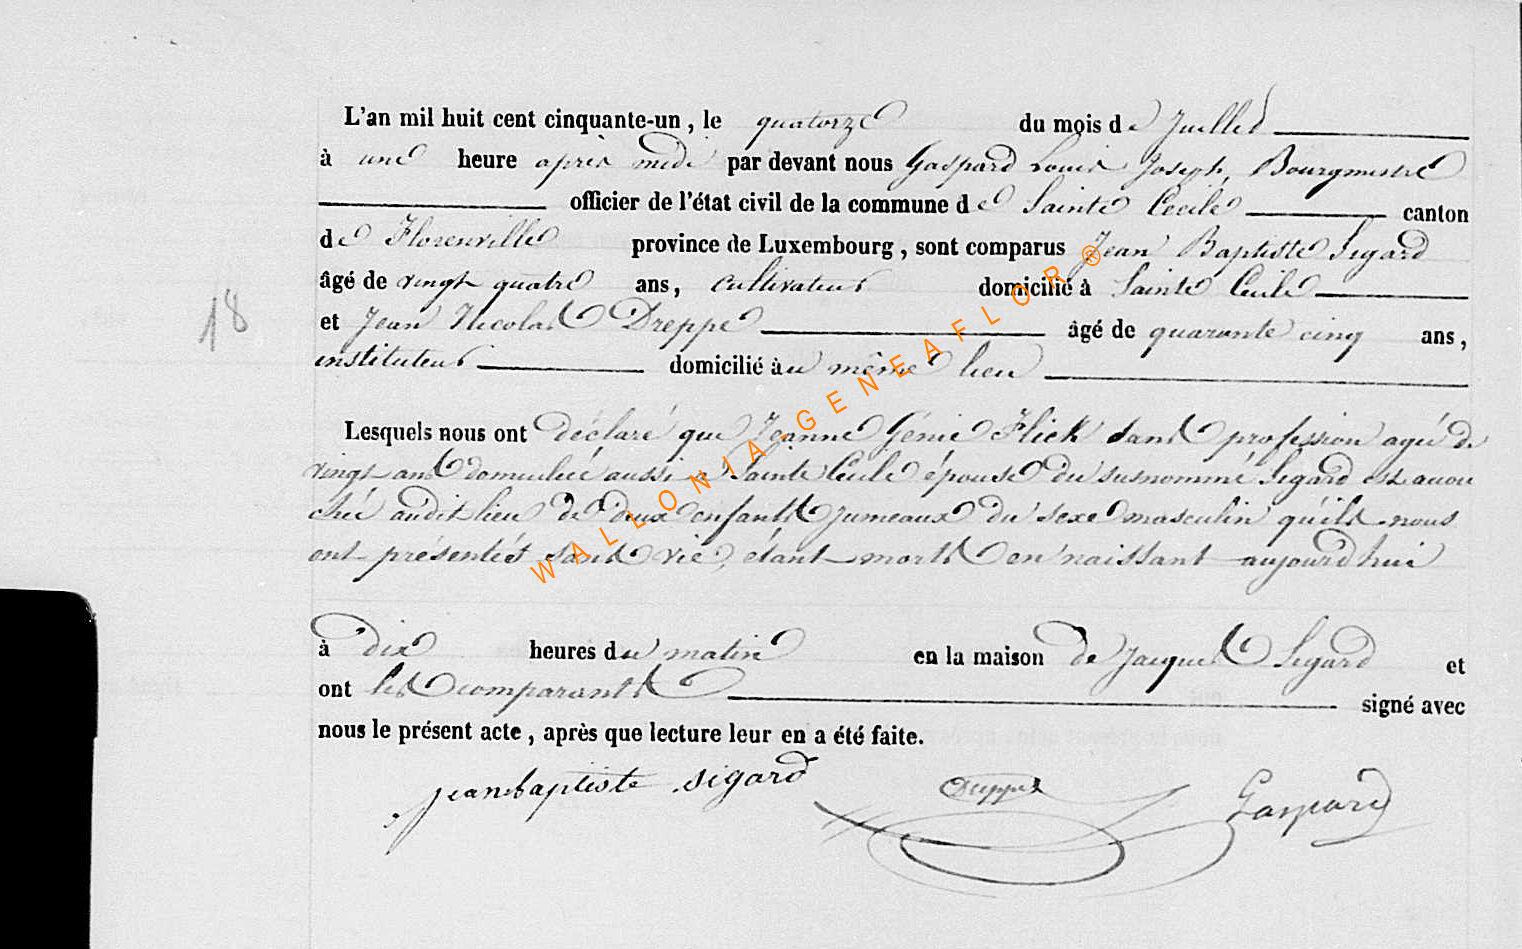 L'an mil huit cent cinquante-un, le quatorze du mois de Juillet
à une heure après midi par devant nous Gaspard Louis Joseph, Bourgmestre
officier de l'état civil de la commune de Sainte Cécile canton
de Florenville province de Luxembourg, sont comparus Jean Baptiste Sigard
âgé de vingt quatre ans, cultivateur domicilié à Sainte Cécile
18
et Jean Nicolas Dreppe âgé de quarante cinq ans,
instituteur domicilié au même lieu
Lesquels nous ont déclaré que Jeanne Génie Flick sans profession agée de
vingt ans domiciliée aussi à Sainte Cécile épouse du susnommé Sigard est accou
chée audit lieu de deux enfants jumeaux du sexe masculin quils nous
ont présentés sans vie, étant morts en naissant aujourd'hui
à dix heures du matin en la maison de Jacques Sigard et
ont les comparants signé avec
nous le présent acte, après que lecture leur en a été faite.
jeanbaptiste sigard Dreppe Gaspard
WALLONIA-GENEAFLOR®